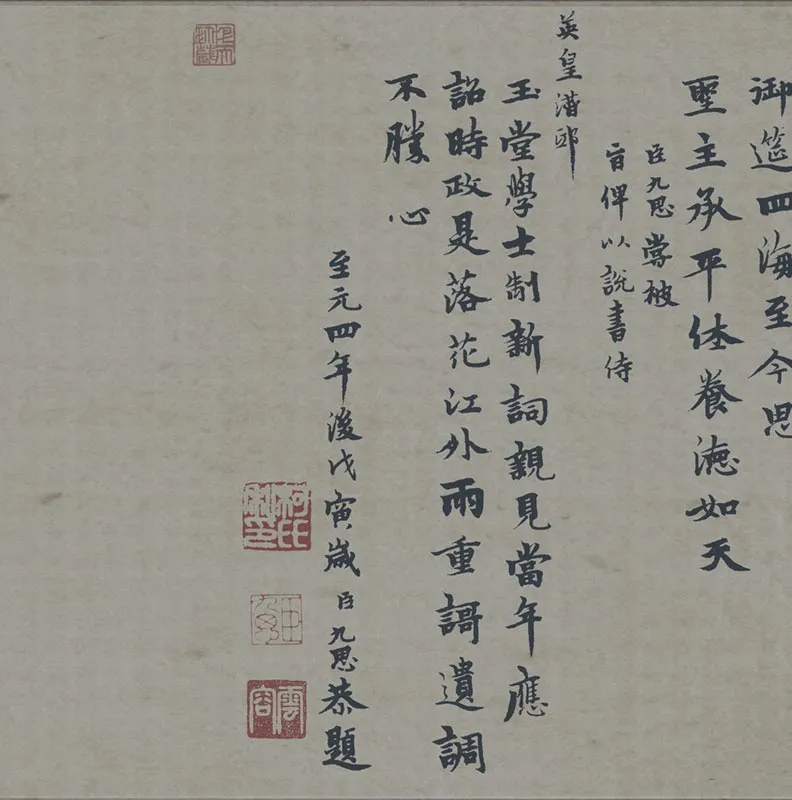 御筵四海至今思
聖主承平休養德如天
臣九思嘗被
旨俾以說書侍
英皇潛邸
玉堂學士制新詞親見當年應
詔時政是落花江外雨重謌遺調
不勝心
至元四年後戊寅歲臣九思恭題
柯氏私印
雲容